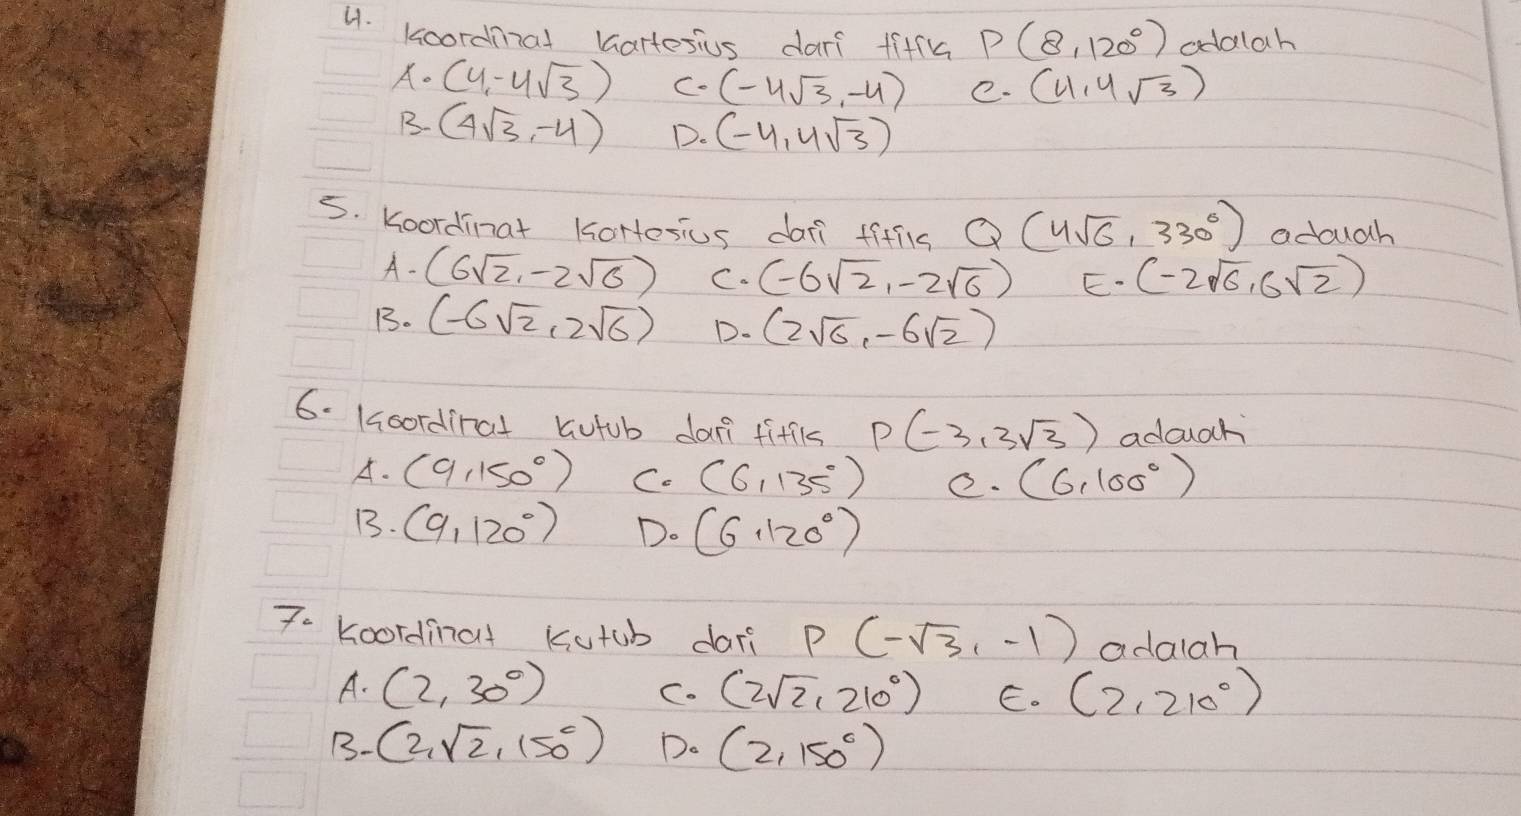 4. Koordinat Kartesius dari titik P (8, 120°) adalah
A. (4, -4√3) C. (-4√3, -4) e. (4, 4√3)
B. (4√3, -4) D. (-4, 4√3)
5. Koordinat Kartesius dari titik Q (4√6, 330°) adalah
A. (6√2, -2√6) C. (-6√2, -2√6) E. (-2√6, 6√2)
B. (-6√2, 2√6) D. (2√6, -6√2)
6. Koordinat Kutub dari titik P (-3, 3√3) adalah
A. (9, 150°) C. (6, 135°) e. (6, 100°)
B. (9, 120°) D. (6, 120°)
7. Koordinat Kutub dari P (-√3, -1) adalah
A. (2, 30°) C. (2√2, 210°) E. (2, 210°)
B. (2, √2, 150°) D. (2, 150°)